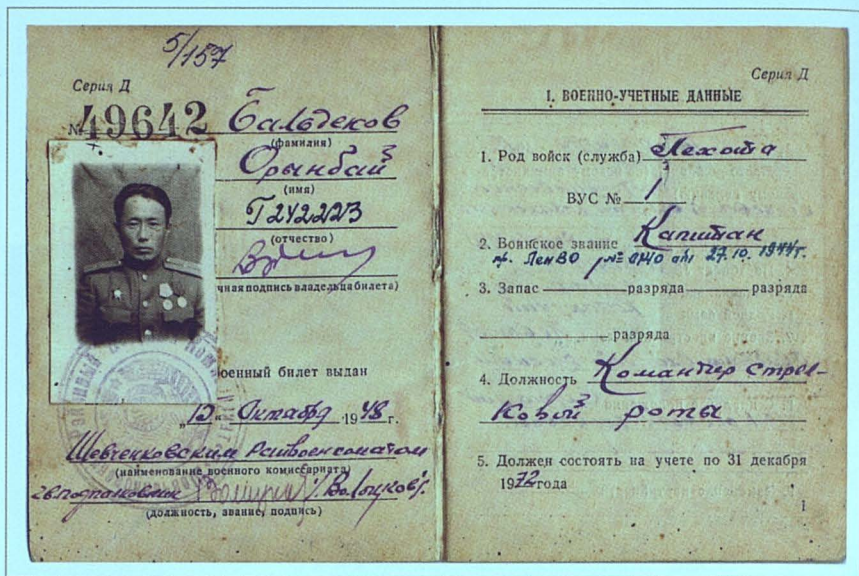 5/157
Серия Д
№ 49642
Бальдеков
(фамилия)
Орынбай
(имя)
Г242223
(отчество)
чная подпись владельца билета)
оенный билет выдан
„12“ Октября 1948 г.
Шевченковским Райвоенкоматом
(наименование военного комиссариата)
подполковник
(должность, звание, подпись)
Серия Д
I. ВОЕННО-УЧЕТНЫЕ ДАННЫЕ
1. Род войск (служба) Пехота
ВУС № 1
2. Воинское звание Капитан
пр. ЛенВО № 0140 от 27.10.1944г.
3. Запас разряда разряда
разряда
4. Должность Командир стрел-
ковой роты
5. Должен состоять на учете по 31 декабря
1972 года
1